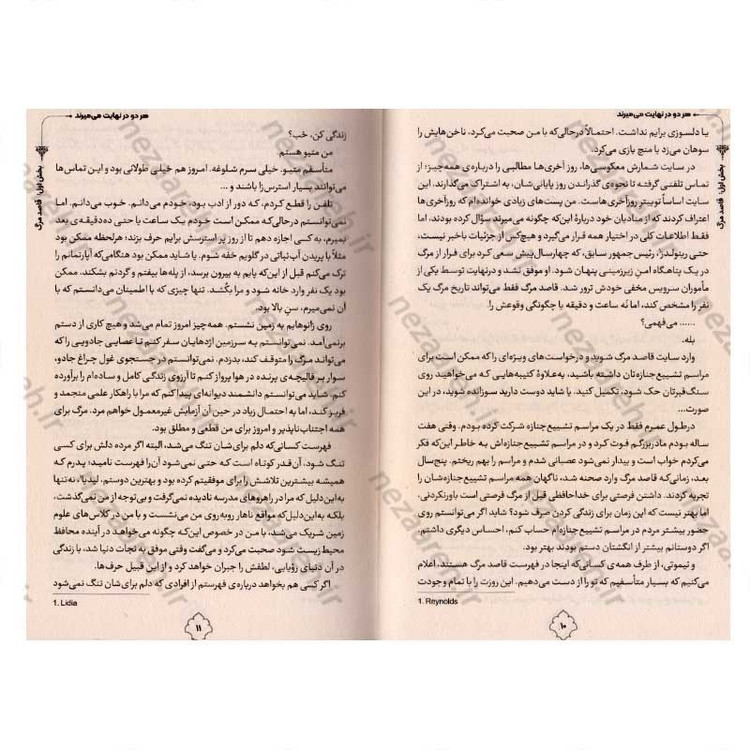 هر دو در نهایت می‌میرند
بخش اول: قاصد مرگ
یا دلسوزی برایم نداشت. احتمالاً درحالی‌که با من صحبت می‌کرد، ناخن‌هایش را
سوهان می‌زد یا منچ بازی می‌کرد.
در سایت شمارش معکوسی‌ها، روز آخری‌ها مطالبی را درباره‌ی همه‌چیز؛ از
تماس تلفنی گرفته تا نحوه‌ی گذراندن روز پایانی‌شان، به اشتراک می‌گذارند. این
سایت اساساً توییتر روزآخری‌هاست. من پست‌های زیادی خوانده‌ام که روزآخری‌ها
اعتراف کردند که از منادیان خود درباره‌ی این‌که چگونه می‌میرند سؤال کرده بودند، اما
فقط اطلاعات کلی در اختیار همه قرار می‌گیرد و هیچ‌کس از جزئیات باخبر نیست،
حتی رینولدز¹، رئیس جمهور سابق، که چهارسال‌پیش سعی کرد برای فرار از مرگ
در یک پناهگاه امن زیرزمینی پنهان شود. او موفق نشد و درنهایت توسط یکی از
مأموران سرویس مخفی خودش ترور شد. قاصد مرگ فقط می‌تواند تاریخ مرگ یک
نفر را مشخص کند، اما نه ساعت و دقیقه یا چگونگی وقوعش را.
...... می‌فهمی؟
بله.
وارد سایت قاصد مرگ شوید و درخواست‌های ویژه‌ای را که ممکن است برای
مراسم تشییع‌جنازه‌تان داشته باشید، به‌علاوهٔ کتیبه‌هایی که می‌خواهید روی
سنگ‌قبرتان حک شود، تکمیل کنید. یا شاید دوست دارید سوزانده شوید، در این
صورت...
درطول عمرم فقط در یک مراسم تشییع‌جنازه شرکت کرده بودم. وقتی هفت
ساله بودم مادربزرگم فوت کرد و در مراسم تشییع‌جنازه‌اش به خاطر این‌که فکر
می‌کردم خواب است و بیدار نمی‌شود عصبانی شدم و مراسم را بهم ریختم. پنج‌سال
بعد، زمانی‌که قاصد مرگ وارد صحنه شد، ناگهان همه مراسم تشییع‌جنازه‌شان را
تجربه کردند. داشتن فرصتی برای خداحافظی قبل از مرگ فرصتی است باورنکردنی،
اما بهتر نیست که این زمان برای زندگی کردن صرف شود؟ شاید اگر می‌توانستم روی
حضور بیشتر مردم در مراسم تشییع‌جنازه‌ام حساب کنم، احساس دیگری داشتم.
اگر دوستانم بیشتر از انگشتان دستم بودند بهتر بود.
و تیموتی، از طرف همه‌ی کسانی‌که اینجا در قاصد مرگ هستند، اعلام
می‌کنیم که بسیار متأسفیم که تو را از دست می‌دهیم. این روزت را با تمام وجودت
1. Reynolds
۱۰
هر دو در نهایت می‌میرند
بخش اول: قاصد مرگ
زندگی کن، خب؟
من متیو هستم
متأسفم متیو. خیلی سرم شلوغه. امروز هم خیلی طولانی بود و این تماس‌ها
می‌توانند بسیار استرس‌زا باشند و ...
تلفن را قطع کردم، که دور از ادب بود، خودم می‌دانم. خوب می‌دانم. اما
نمی‌توانستم درحالی‌که ممکن است خودم یک ساعت یا حتی ده‌دقیقه‌ی بعد
بمیرم، به کسی اجازه دهم تا از روز پر استرسش برایم حرف بزند؛ هرلحظه ممکن بود
مثلاً با پریدن آب‌نباتی در گلویم خفه شوم. یا شاید ممکن بود هنگامی‌که آپارتمانم را
ترک می‌کنم قبل از این‌که پایم به بیرون برسد، از پله‌ها بیفتم و گردنم بشکند. ممکن
بود یک نفر وارد خانه شود و مرا بکُشد. تنها چیزی که با اطمینان می‌دانستم که با
آن نمی‌میرم، سن بالا بود.
روی زانوهایم به زمین نشستم. همه‌چیز امروز تمام می‌شد و هیچ کاری از دستم
برنمی‌آمد. نمی‌توانستم به سرزمین اژدهایان سفر کنم تا عصایی جادویی را که
می‌تواند مرگ را متوقف کند، بدزدم. نمی‌توانستم در جستجوی غول چراغ جادو،
سوار بر قالیچه‌ی پرنده در هوا پرواز کنم تا آرزوی زندگی کامل و ساده‌ام را برآورده
کند. شاید می‌توانستم دانشمند دیوانه‌ای پیدا کنم که مرا با راهکار علمی منجمد و
فریز کند، اما به احتمال زیاد در حین آن آزمایش غیرمعمول خواهم مرد. مرگ برای
همه اجتناب‌ناپذیر و امروز برای من قطعی و مطلق بود.
فهرست کسانی‌که دلم برای‌شان تنگ می‌شد، البته اگر مرده دلش برای کسی
تنگ شود، آن‌قدر کوتاه است که حتی نمی‌شود آن‌را فهرست نامید؛ پدرم که
همیشه بیشترین تلاشش را برای موفقیتم کرده بود و بهترین دوستم، لیدیا¹، نه‌تنها
به‌این‌دلیل که مرا در راهروهای مدرسه نادیده نمی‌گرفت و بی‌توجه از من نمی‌گذشت،
بلکه به‌این‌دلیل‌که مواقع ناهار روبه‌روی من می‌نشست و با من در کلاس‌های علوم
زمین شریک می‌شد، با من در خصوص این‌که چگونه می‌خواهد در آینده محافظ
محیط زیست شود صحبت می‌کرد و می‌گفت وقتی موفق به نجات دنیا شد، با زندگی
در آن دنیای رؤیایی، لطفش را جبران خواهد کرد و از این قبیل حرف‌ها.
اگر کسی هم بخواهد درباره‌ی فهرستم از افرادی که دلم برای‌شان تنگ نمی‌شود
1. Lidia
۱۱
nezarreh.ir